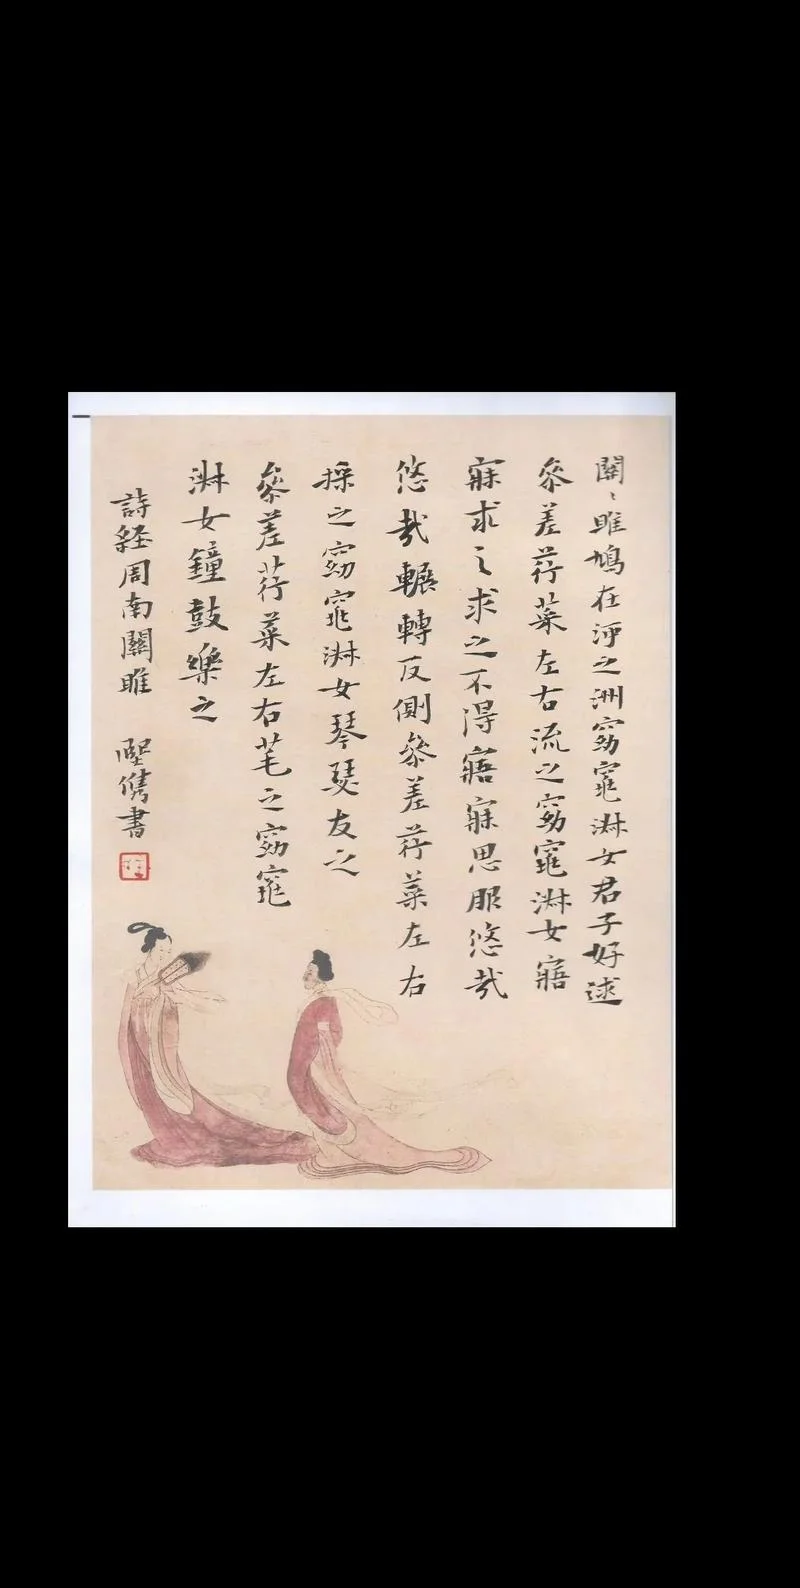 關〻雎鳩在河之洲窈窕淑女君子好逑
參差荇菜左右流之窈窕淑女寤
寐求之求之不得寤寐思服悠哉
悠哉輾轉反側參差荇菜左右
採之窈窕淑女琴瑟友之
參差荇菜左右芼之窈窕
淑女鐘鼓樂之
詩経周南關雎 儁書